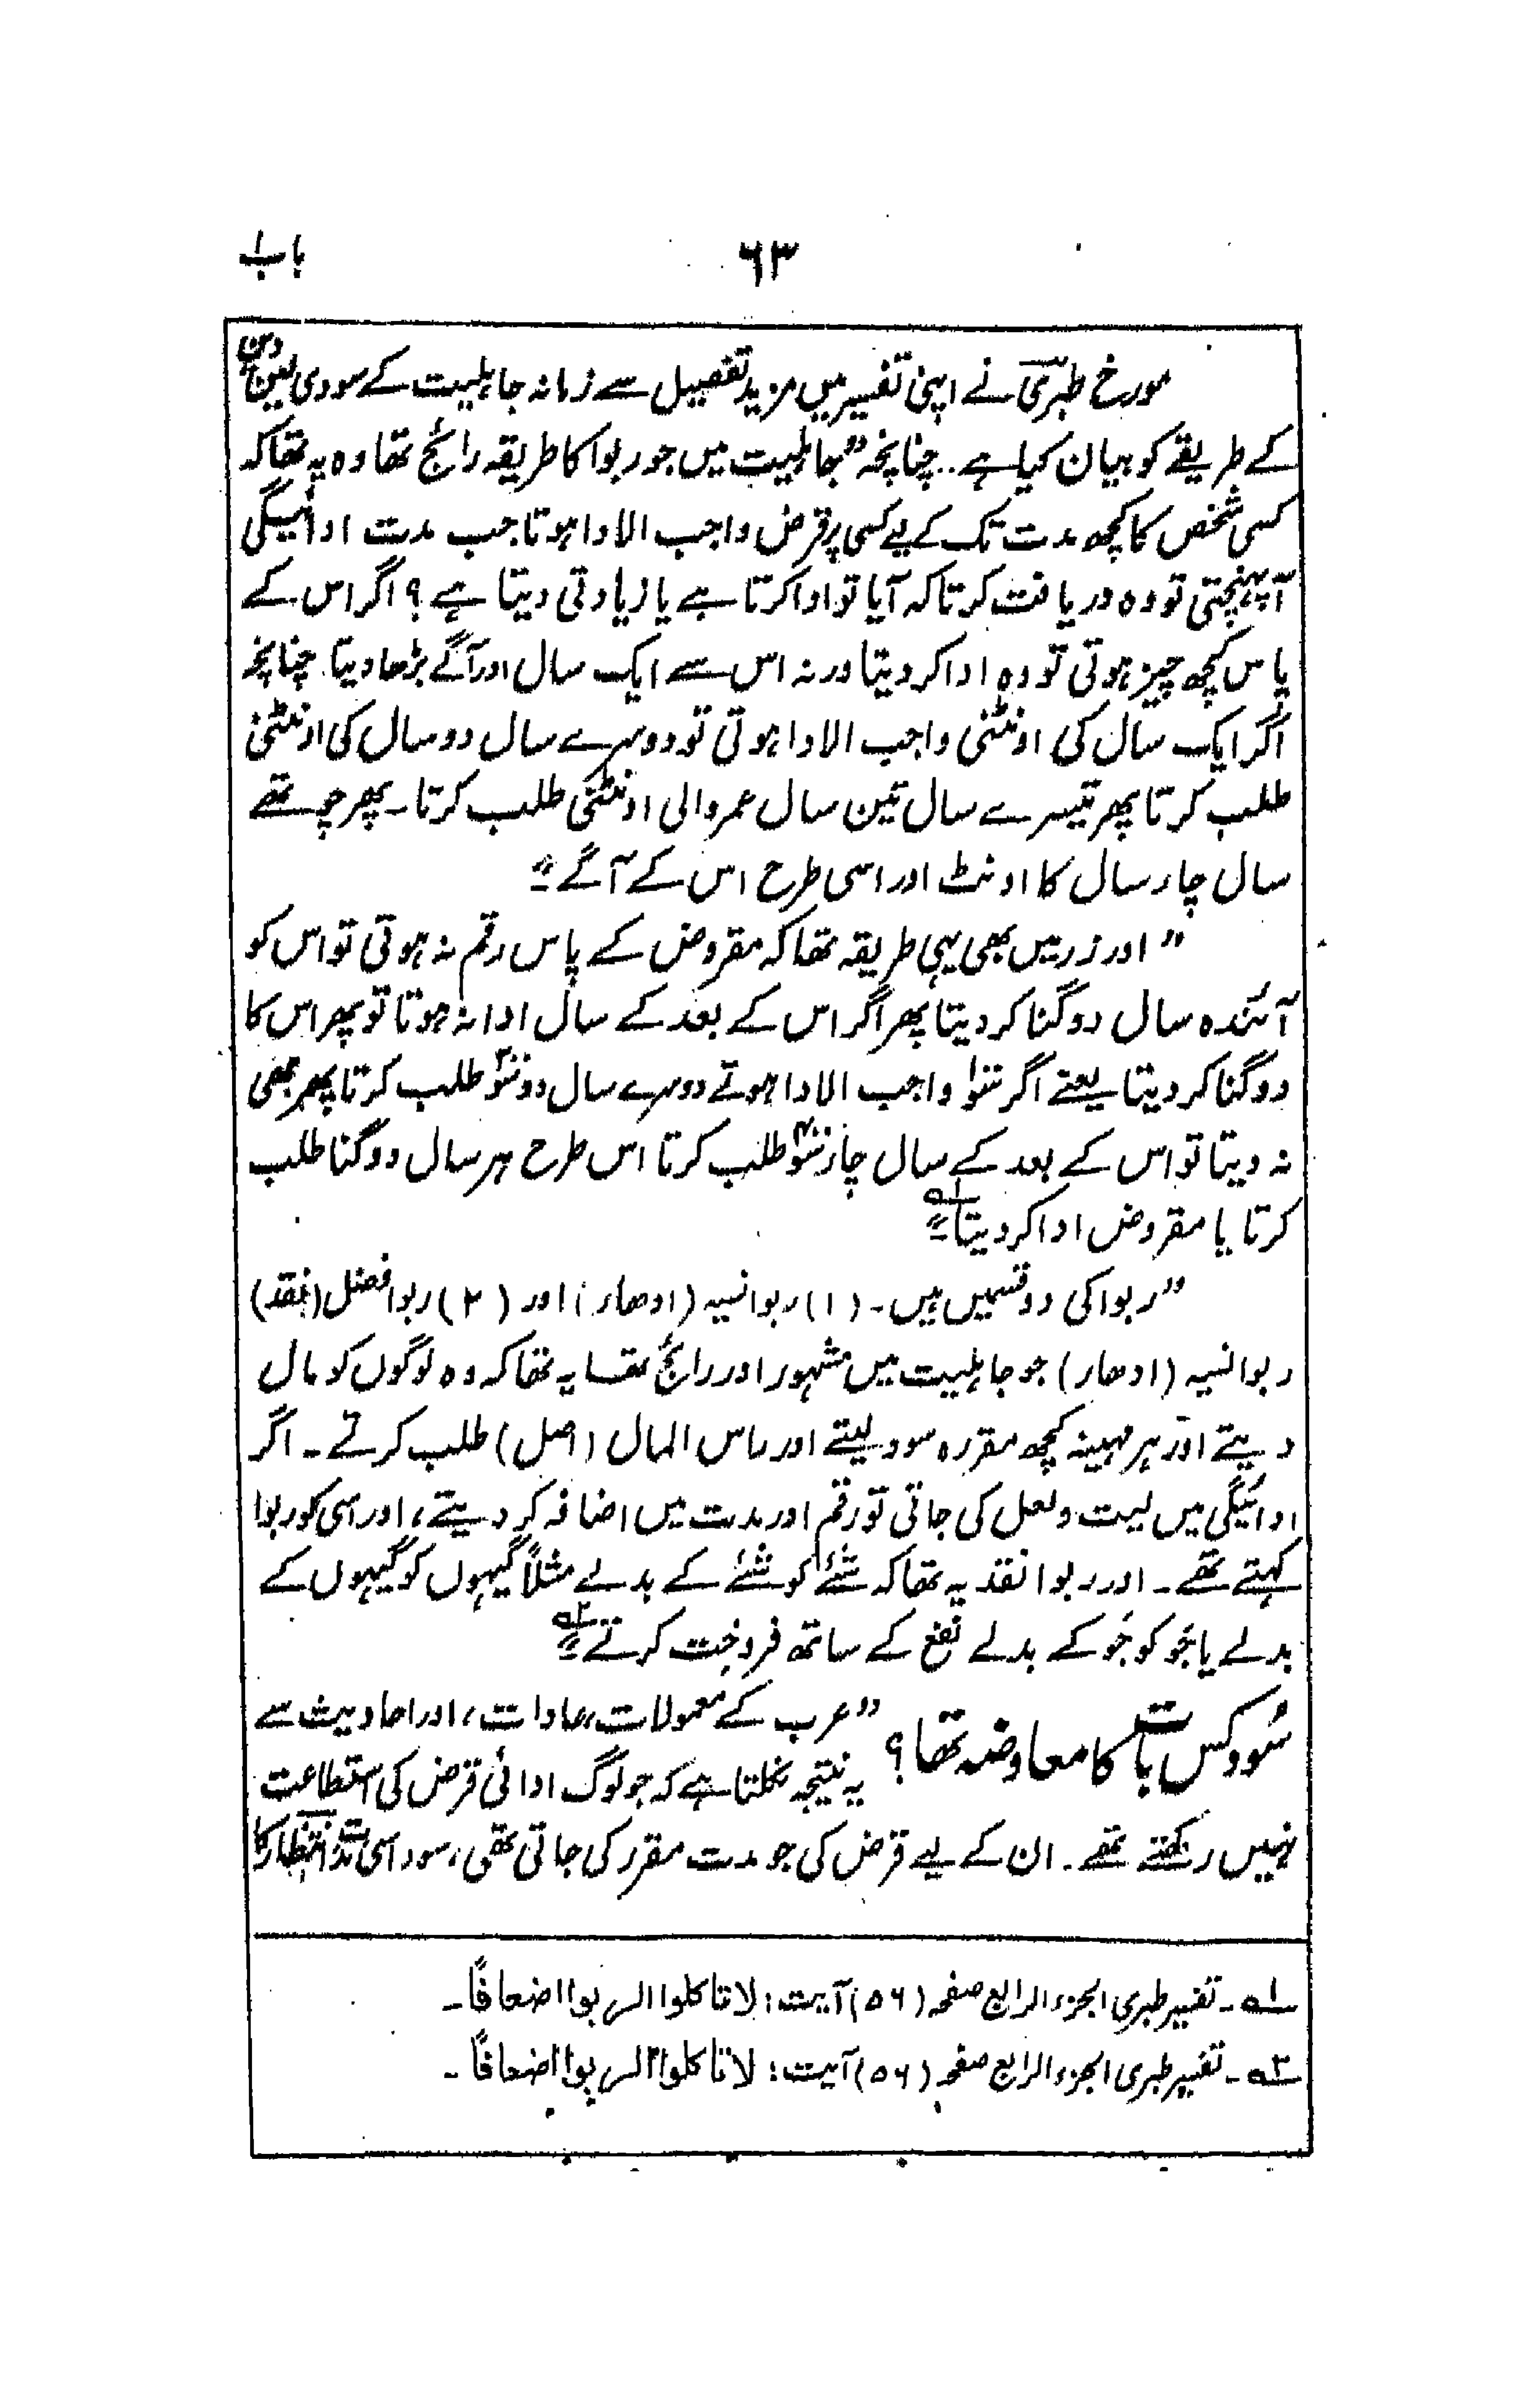 باب ۱
۶۳
مورخ طبریؒ نے اپنی تفسیر میں مزید تفصیل سے زمانہ جاہلیت کے سودی لین دین
کے طریقے کو بیان کیا ہے۔ چنانچہ ”جاہلیت میں جو ربوا کا طریقہ رائج تھا وہ یہ تھا کہ
کسی شخص کا کچھ مدت تک کے لیے کسی پر قرض واجب الادا ہوتا جب مدت ادائیگی
آپہنچتی تو وہ دریافت کرتا کہ آیا تو ادا کرتا ہے یا زیادتی دیتا ہے ؟ اگر اس کے
پاس کچھ چیز ہوتی تو وہ ادا کر دیتا ورنہ اس سے ایک سال اور آگے بڑھا دیتا۔ چنانچہ
اگر ایک سال کی اونٹنی واجب الادا ہوتی تو دوسرے سال دو سال کی اونٹنی
طلب کرتا پھر تیسرے سال تین سال عمر والی اونٹنی طلب کرتا۔ پھر چوتھے
سال چار سال کا اونٹ اور اسی طرح اس کے آگے“
”اور زر میں بھی یہی طریقہ تھا کہ مقروض کے پاس رقم نہ ہوتی تو اس کو
آئندہ سال دوگنا کر دیتا پھر اگر اس کے بعد کے سال ادا نہ ہوتا تو پھر اس کا
دوگنا کر دیتا یعنے اگر سو واجب الادا ہوتے دوسرے سال دو سو طلب کرتا پھر بھی
نہ دیتا تو اس کے بعد کے سال چار سو طلب کرتا اس طرح ہر سال دوگنا طلب
کرتا یا مقروض ادا کر دیتا“ ۱ہ
”ربوا کی دو قسمیں ہیں۔ (۱) ربوا نسیہ (ادھار) اور (۲) ربوا فضل (نقد)
ربوا نسیہ (ادھار) جو جاہلیت میں مشہور اور رائج تھا یہ تھا کہ وہ لوگوں کو مال
دیتے اور ہر مہینہ کچھ مقررہ سود لیتے اور راس المال (اصل) طلب کرتے۔ اگر
ادائیگی میں لیت و لعل کی جاتی تو رقم اور مدت میں اضافہ کر دیتے، اور اسی کو ربوا
کہتے تھے۔ اور ربوا نقد یہ تھا کہ شئے کو شئے کے بدلے مثلاً گیہوں کو گیہوں کے
بدلے یا جَو کو جَو کے بدلے نفع کے ساتھ فروخت کرتے“ ۲ہ
سُود کس بات کا معاوضہ تھا؟ ”عرب کے معمولات، عادات، اور احادیث سے
یہ نتیجہ نکلتا ہے کہ جو لوگ ادائی قرض کی استطاعت
نہیں رکھتے تھے۔ ان کے لیے قرض کی جو مدت مقرر کی جاتی تھی، سود اسی مدت انتظار کا
۱ہ۔ تفسیر طبری الجزء الرابع صفحہ (۵۶) آیت: لا تاکلوا الربوا اضعافاً۔
۲ہ۔ تفسیر طبری الجزء الرابع صفحہ (۵۶) آیت: لا تاکلوا الربوا اضعافاً۔